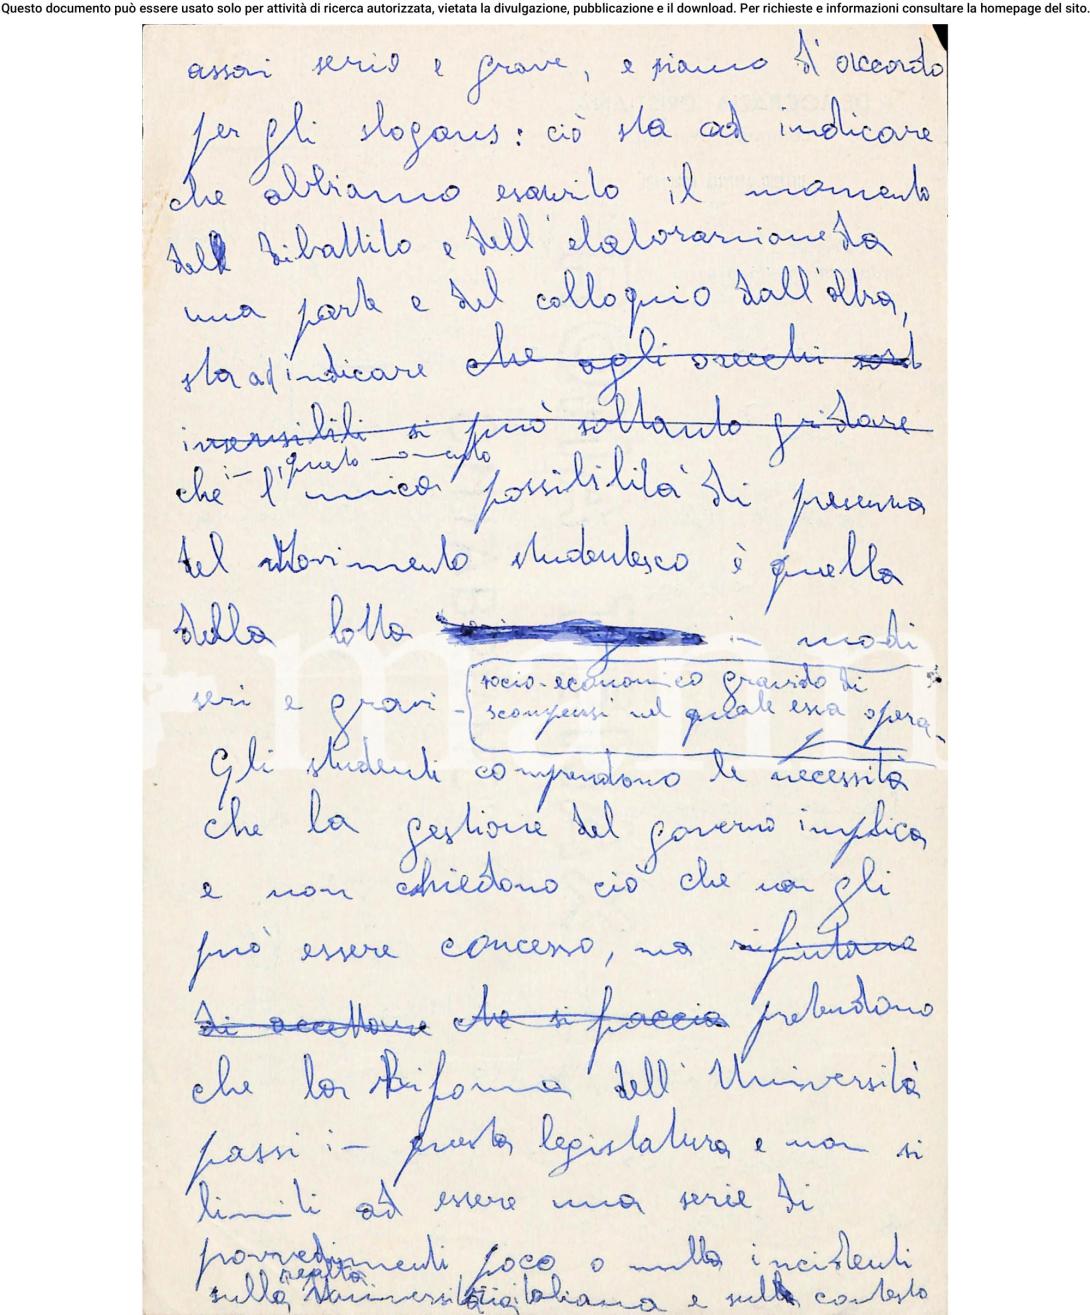 Questo documento può essere usato solo per attività di ricerca autorizzata, vietata la divulgazione, pubblicazione e il download. Per richieste e informazioni consultare la homepage del sito.
assai serio e grave, e siamo d'accordo
per gli slogans: ciò sta ad indicare
che abbiamo esaurito il momento
del dibattito e dell'elaborazione da
una parte e del colloquio dall'altra,
sta ad indicare che agli orecchi sord
insensibili si può soltanto gridare
in questo momento
che l'unica possibilità di presenza
del Movimento studentesco è quella
della lotta in modi
seri e gravi -
socio-economico gravido di
scompensi nel quale essa opera.
Gli studenti comprendono le necessità
che la gestione del governo implica
e non chiedono ciò che non gli
può essere concesso, ma rifiutano
di accettare che si faccia pretendono
che la Riforma dell'Università
passi in questa legislatura e non si
limiti ad essere una serie di
provvedimenti poco o nulla incidenti
realtà
sulla Universitaria italiana e sul contesto
mann